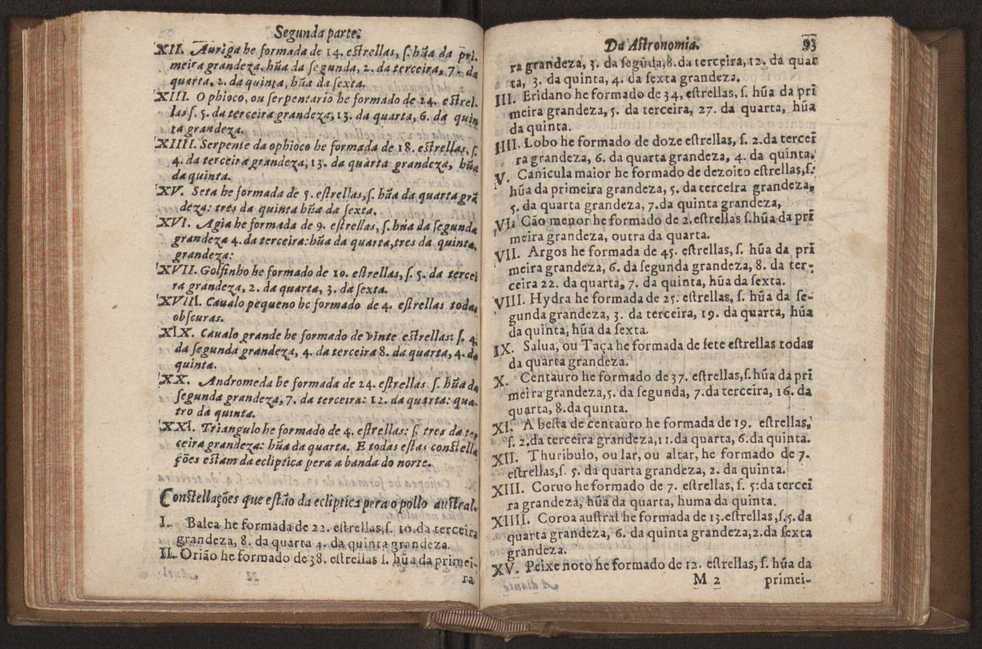 Segunda parte.
XII. Auriga he formada de 14. estrellas, s. hũa da pri-
meira grandeza. hũa da segunda, 2. da terceira, 7. da
quarta, 2. da quinta, hũa da sexta.
XIII. Ophioco, ou serpentario he formado de 24. estrel.
las s. 5. da terceira grandeza, 13. da quarta, 6. da quin
ta grandeza.
XIIII. Serpente da ophioco he formada de 18. estrellas, s.
4. da terceira grandeza, 13. da quarta grandeza, hũa
da quinta.
XV. Seta he formada de 5. estrellas, s. hũa da quarta grã
deza: tres da quinta hũa da sexta.
XVI. Agia he formada de 9. estrellas, s. hũa da segunda
grandeza 4. da terceira: hũa da quarta, tres da quinta,
grandeza:
XVII. Golfinho he formado de 10. estrellas, s. 5. da tercei
ra grandeza, 2. da quarta, 3. da sexta.
XVIII. Caualo pequeno he formado de 4. estrellas todas
obscuras.
XIX. Caualo grande he formado de vinte estrellas s. 4.
da segunda grandeza, 4. da terceira 8. da quarta, 4. da
quinta.
XX. Andromeda he formada de 24. estrellas s. hũa da
segunda grandeza, 7. da terceira: 12. da quarta: qua-
tro da quinta.
XXI. Triangulo he formado de 4. estrellas: s. tres da ter
ceira grandeza: hũa da quarta. E todas estas constella
ções estam da ecliptica pera a banda do norte.
Constellações que estão da ecliptica pera o pollo austral.
I. Balea he formada de 22. estrellas, s. 10. da terceira
grandeza, 8. da quarta 4. da quinta grandeza.
II. Orião he formado de 38. estrellas s. hũa da primei-
ra
Da Astronomia. 93
ra grandeza, 3. da segũda, 8. da terceira, 12. da quar
ta, 3. da quinta, 4. da sexta grandeza.
III. Eridano he formado de 34, estrellas, s. hũa da pri
meira grandeza, 5. da terceira, 27. da quarta, hũa
da quinta.
IIII. Lobo he formado de doze estrellas, s. 2. da tercei
ra grandeza, 6. da quarta grandeza, 4. da quinta.
V. Canicula maior he formado de dezoito estrellas, s:
hũa da primeira grandeza, 5. da terceira grandeza,
5. da quarta grandeza, 7. da quinta grandeza,
VI. Cão menor he formado de 2. estrellas s. hũa da pri
meira grandeza, outra da quarta.
VII. Argos he formada de 45. estrellas, s. hũa da pri
meira grandeza, 6. da segunda grandeza, 8. da ter-
ceira 22. da quarta, 7. da quinta, hũa da sexta.
VIII. Hydra he formada de 25. estrellas, s. hũa da se-
gunda grandeza, 3. da terceira, 19. da quarta, hũa
da quinta, hũa da sexta.
IX. Salua, ou Taça he formada de sete estrellas todas
da quarta grandeza.
X. Centauro he formado de 37. estrellas, s. hũa da pri
meira grandeza, 5. da segunda, 7. da terceira, 16. da
quarta, 8. da quinta.
XI. A besta de centauro he formada de 19. estrellas,
s. 2. da terceira grandeza, 11. da quarta, 6. da quinta.
XII. Thuribulo, ou lar, ou altar, he formado de 7.
estrellas, s. 5. da quarta grandeza, 2. da quinta.
XIII. Coruo he formado de 7. estrellas, s. 5: da tercei
ra grandeza, hũa da quarta, huma da quinta.
XIIII. Coroa austral he formada de 13. estrellas, s. 5. da
quarta grandeza, 6. da quinta grandeza, 2. da sexta
grandeza.
XV. Peixe noto he formado de 12. estrellas, s. hũa da
M 2 primei-